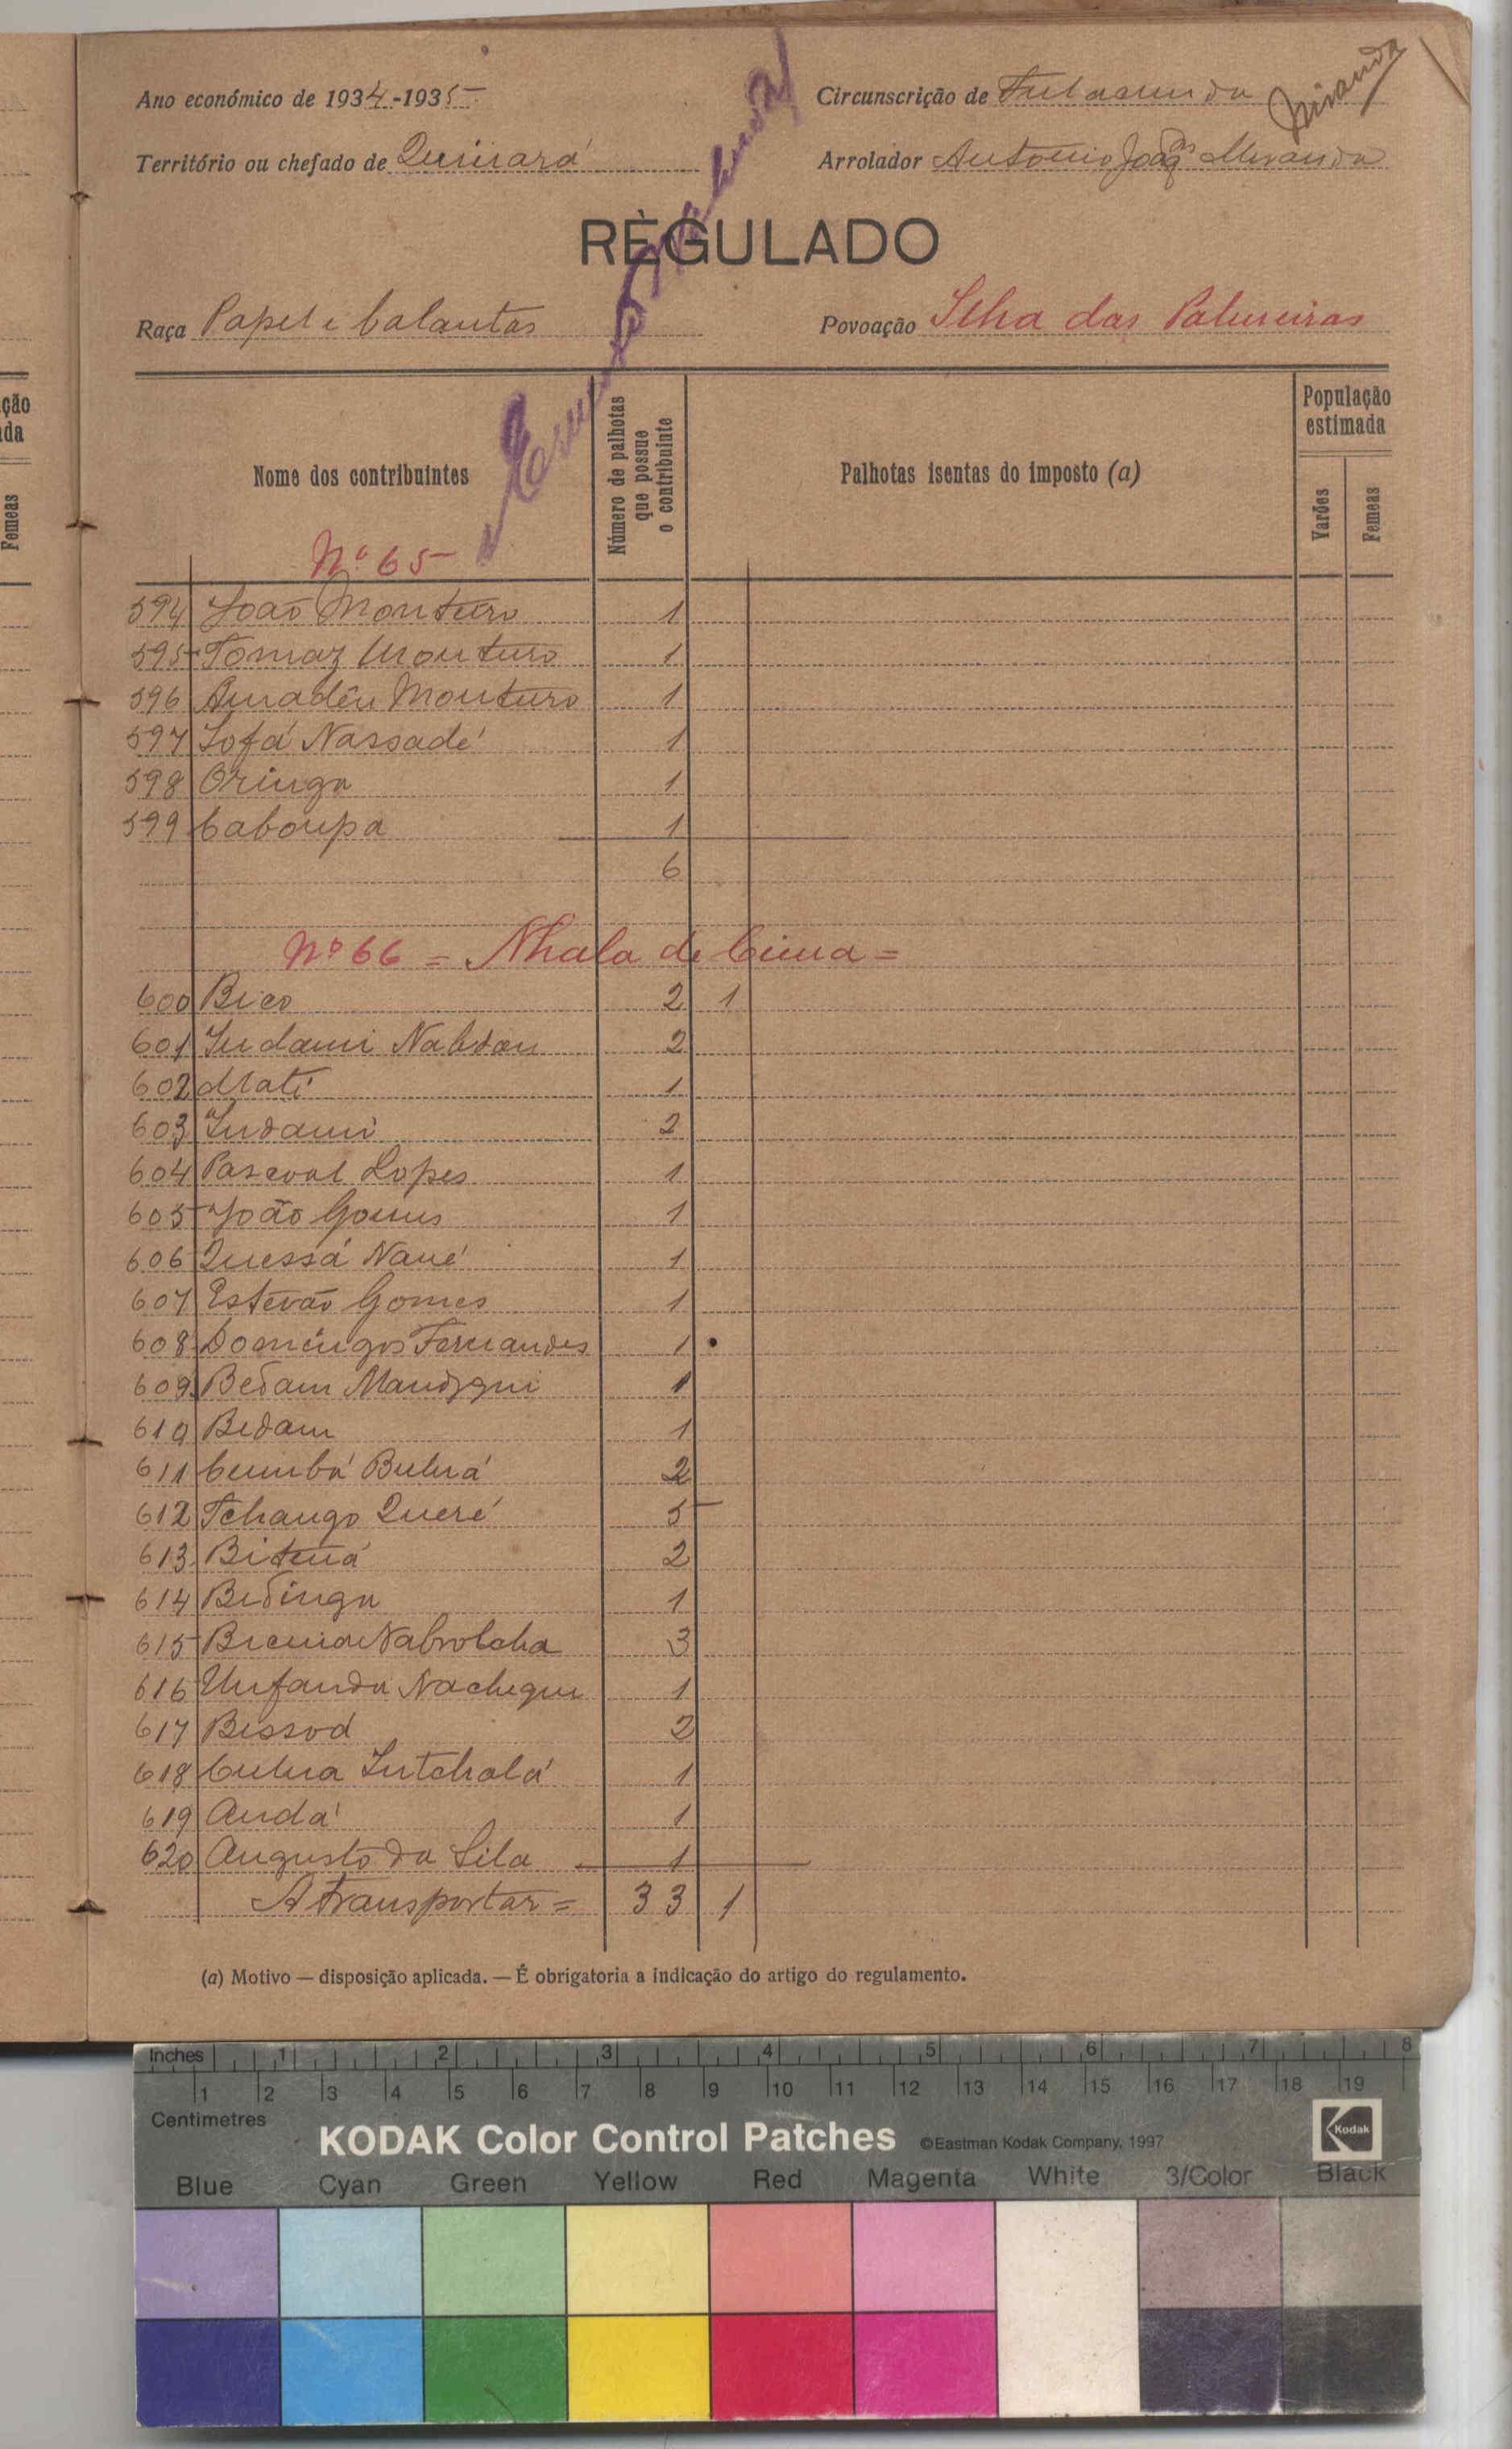 Ano económico de 1934-1935
Circunscrição de Fulacunda
Miranda
Território ou chefado de Quinará
Arrolador António Joaq Miranda
RÈGULADO
Raça Papel e balantas
Povoação Ilha das Palmeiras
Nome dos contribuintes
Número de palhotas que possue o contribuinte
Palhotas isentas do imposto (a)
População estimada
Varões
Femeas
ção
da
Femeas
Nº 65
594 João Monteiro 1
595 Tomaz Monteiro 1
596 Amadêu Monteiro 1
597 Jofá Nassadé 1
598 Oringa 1
599 Caboupa 1
6
Nº 66 = Nhala de Cima =
600 Bico 2 1
601 Indami 2
602 Mati 1
603 Indami 2
604 Pascoal Lopes 1
605 João Gomes 1
606 Quessá Nané 1
607 Estevão Gomes 1
608 Domingos Fernandes 1
609 Bedam 1
610 Bedam 1
611 Cumbá 2
612 Tchango Queré 5
613 2
614 Bedinga 1
615 3
616 Unfanda 1
617 Bissod 2
618 1
619 Andá 1
620 Augusto da Sila 1
A transportar = 33 1
(a) Motivo — disposição aplicada. — É obrigatoria a indicação do artigo do regulamento.
Inches 1 2 3 4 5 6 7 8
1 2 3 4 5 6 7 8 9 10 11 12 13 14 15 16 17 18 19
Centimetres
KODAK Color Control Patches ©Eastman Kodak Company, 1997 Kodak
Blue Cyan Green Yellow Red Magenta White 3/Color Black